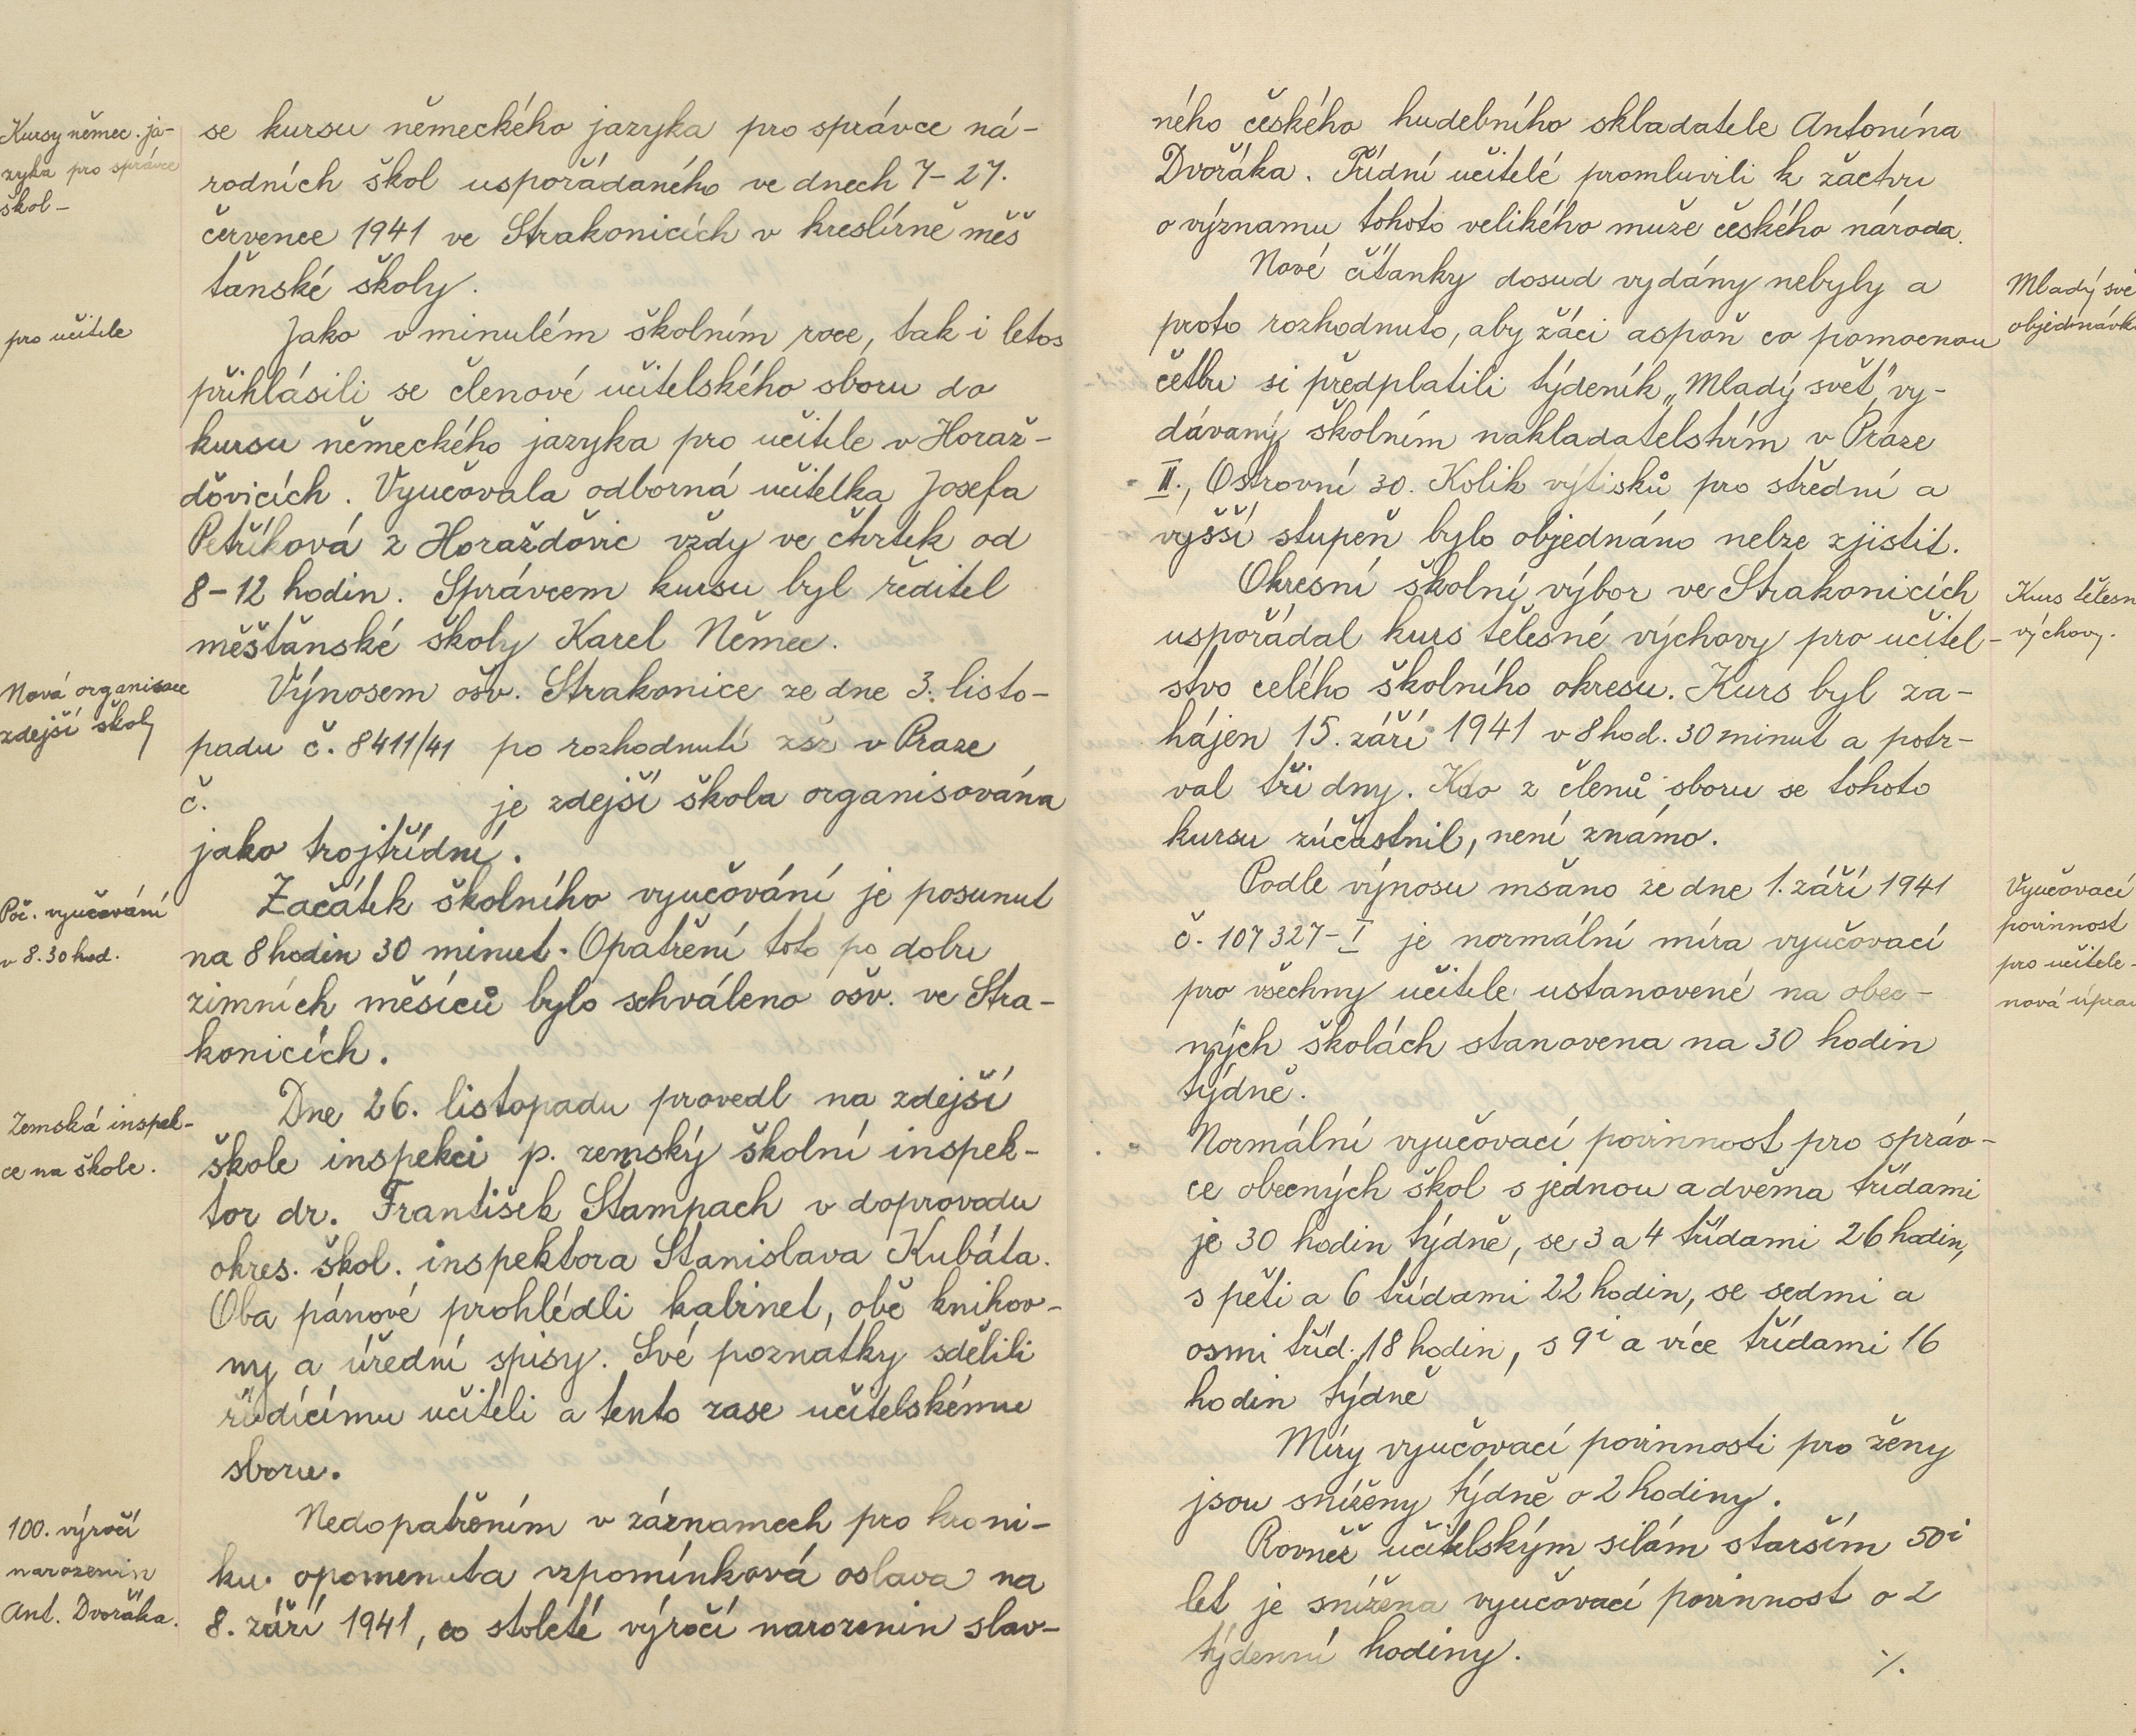 Kursy němec. ja-
zyka pro správce
škol -
se kursu německého jazyka pro správce ná-
rodních škol uspořádaného ve dnech 7-27.
července 1941 ve Strakonicích v kreslírně měš
ťanské školy.
pro učitele
Jako v minulém školním roce, tak i letos
přihlásili se členové učitelského sboru do
kursu německého jazyka pro učitele v Horaž-
ďovicích. Vyučovala odborná učitelka Josefa
Petříková z Horažďovic vždy ve čtvrtek od
8-12 hodin. Správcem kursu byl ředitel
měšťanské školy Karel Němec.
Nová organisace
zdejší školy
Výnosem ošv. Strakonice ze dne 3. listo-
padu č. 8411/41 po rozhodnutí zšr v Praze
č. je zdejší škola organisována
jako trojtřídní.
Poč. vyučování
v 8.30 hod.
Začátek školního vyučování je posunut
na 8 hodin 30 minut. Opatření toto po dobu
zimních měsíců bylo schváleno ošv. ve Stra-
konicích.
Zemská inspek-
ce na škole.
Dne 26. listopadu provedl na zdejší
škole inspekci p. zemský školní inspek-
tor dr. František Štampach v doprovodu
okres. škol. inspektora Stanislava Kubáta.
Oba pánové prohlédli kabinet, obě knihov-
ny a úřední spisy. Své poznatky sdělili
řídícímu učiteli a tento zase učitelskému
sboru.
100. výročí
narozenin
Ant. Dvořáka.
Nedopatřením v záznamech pro kroni-
ku. opomenuta vzpomínková oslava na
8. září 1941, co stoleté výročí narozenin slav-
ného českého hudebního skladatele Antonína
Dvořáka. Třídní učitelé promluvili k žactvu
o významu tohoto velikého muže českého národa.
Mladý svě
objednávk
Nové čítanky dosud vydány nebyly a
proto rozhodnuto, aby žáci aspoň co pomocnou
četbu si předplatili týdeník „Mladý svět" vy-
dávaný školním nakladatelstvím v Praze
II., Ostrovní 30. Kolik výtisků pro střední a
vyšší stupeň bylo objednáno nelze zjistit.
Kurs tělesn
výchovy.
Okresní školní výbor ve Strakonicích
uspořádal kurs tělesné výchovy pro učitel-
stvo celého školního okresu. Kurs byl za-
hájen 15. září 1941 v 8 hod. 30 minut a potr-
val tři dny. Kdo z členů sboru se tohoto
kursu zúčastnil, není známo.
Vyučovací
povinnost
pro učitele-
nová úprav
Podle výnosu mšano ze dne 1. září 1941
č. 107327-I je normální míra vyučovací
pro všechny učitele ustanovené na obec-
ných školách stanovena na 30 hodin
týdně.
Normální vyučovací povinnost pro správ-
ce obecných škol s jednou a dvěma třídami
je 30 hodin týdně, se 3 a 4 třídami 26 hodin,
s pěti a 6 třídami 22 hodin, se sedmi a
osmi tříd. 18 hodin, s 9i a více třídami 16
hodin týdně
Míry vyučovací povinnosti pro ženy
jsou sníženy týdně o 2 hodiny.
Rovněž učitelským silám starším 50i
let je snížena vyučovací povinnost o 2
týdenní hodiny. ⁒